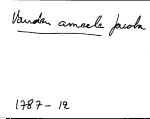 Vanden amsele Jacoba
1787 - 12